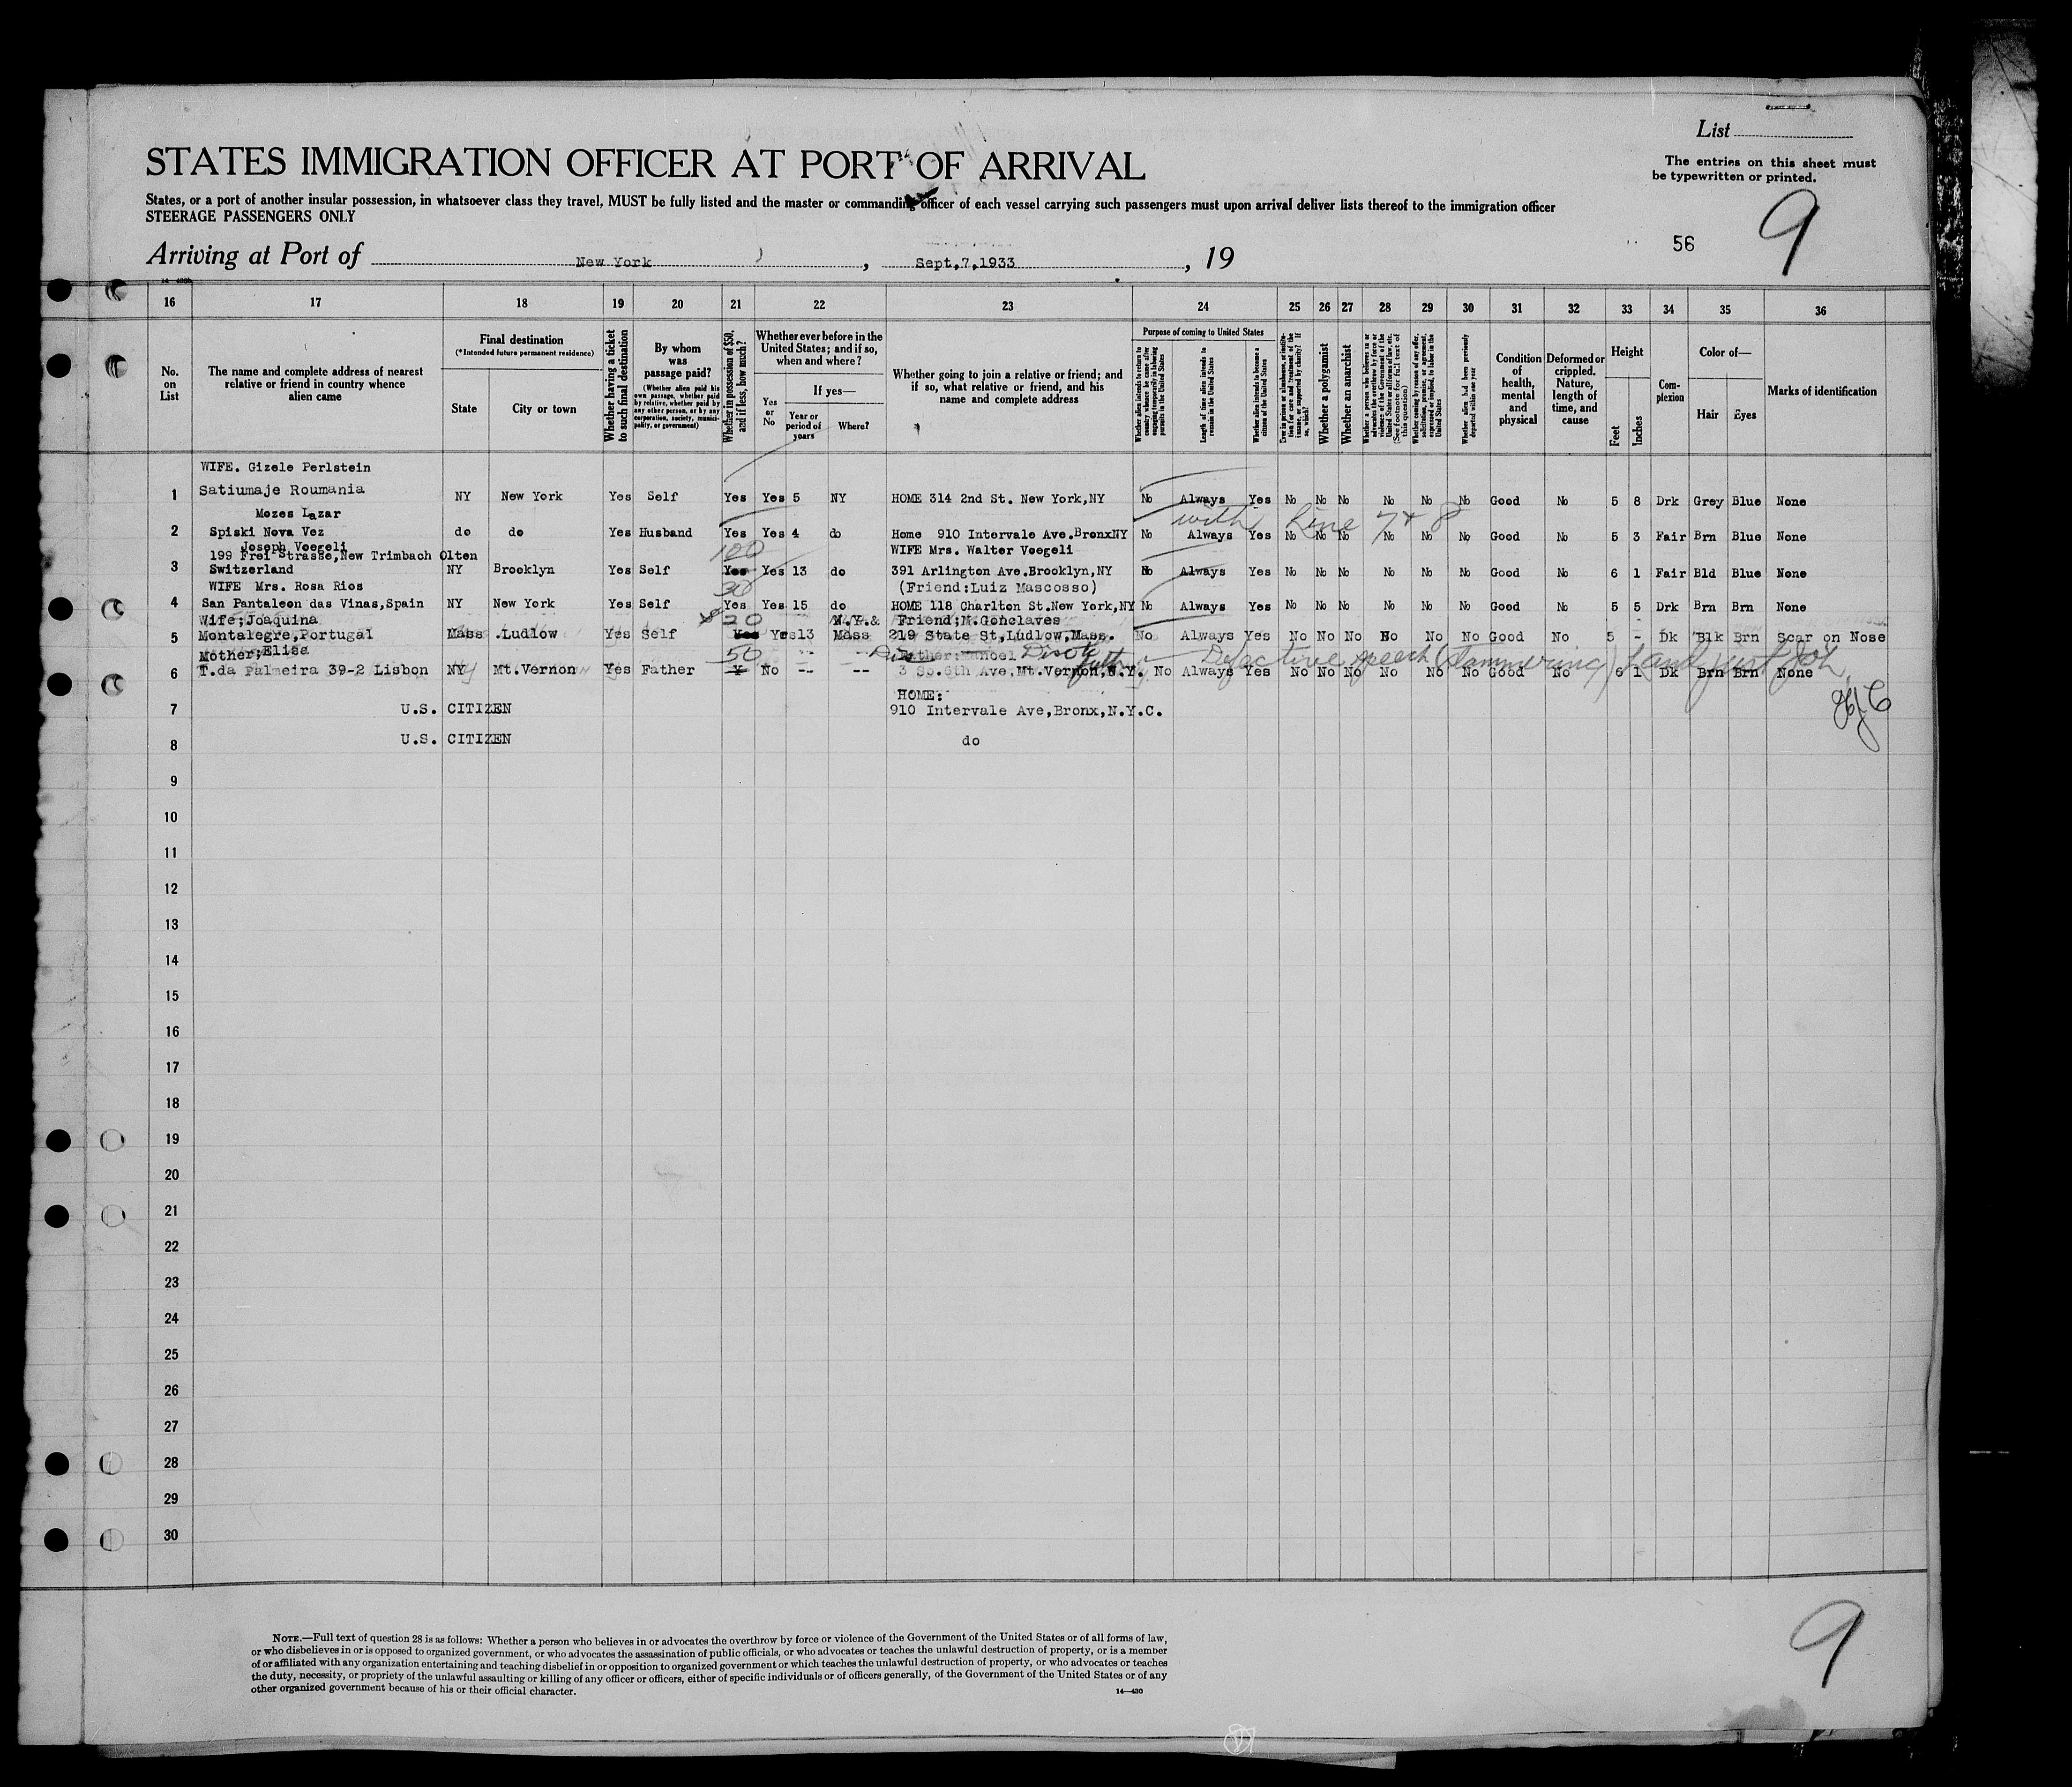 List
The entries on this sheet must
be typewritten or printed.
STATES IMMIGRATION OFFICER AT PORT OF ARRIVAL
States, or a port of another insular possession, in whatsoever class they travel, MUST be fully listed and the master or commanding officer of each vessel carrying such passengers must upon arrival deliver lists thereof to the immigration officer
STEERAGE PASSENGERS ONLY
56 9
Arriving at Port of New York, Sept.7.1933, 19
16 17 18 19 20 21 22 23 24 25 26 27 28 29 30 31 32 33 34 35 36
No. on List
The name and complete address of nearest relative or friend in country whence alien came
Final destination
(*Intended future permanent residence)
State
City or town
Whether having a ticket to such final destination
By whom was passage paid?
(Whether alien paid his own passage, whether paid by relative, whether paid by any other person, or by any corporation, society, municipality, or government)
Whether in possession of $50, and if less, how much?
Whether ever before in the United States; and if so, when and where?
If yes—
Yes or No
Year or period of years
Where?
Whether going to join a relative or friend; and if so, what relative or friend, and his name and complete address
Purpose of coming to United States
Whether alien intends to return to country whence he came after engaging temporarily in laboring pursuits in the United States
Length of time alien intends to remain in the United States
Whether alien intends to become a citizen of the United States
Ever in prison or almshouse, or institution for care and treatment of the insane, or supported by charity? If so, which?
Whether a polygamist
Whether an anarchist
Whether a person who believes in or advocates the overthrow by force or violence of the Government of the United States or all forms of law, etc. (See footnote for full text of this question)
Whether coming by reason of any offer, solicitation, promise, or agreement, expressed or implied, to labor in the United States
Whether alien had been previously deported within one year
Condition of health, mental and physical
Deformed or crippled. Nature, length of time, and cause
Height
Feet
Inches
Complexion
Color of—
Hair
Eyes
Marks of identification
WIFE. Gizele Perlstein
1 Satiumaje Roumania NY New York Yes Self Yes Yes 5 NY HOME 314 2nd St. New York,NY No Always Yes No No No No No No Good No 5 8 Drk Grey Blue None
Mozes Lazar
with line 7 & 8
2 Spiski Nova Vez do do Yes Husband Yes Yes 4 do Home 910 Intervale Ave.BronxNY No Always Yes No No No No No No Good No 5 3 Fair Brn Blue None
Joseph Voegeli 100 WIFE Mrs. Walter Voegeli
199 Frei Strasse,New Trimbach Olten
3 Switzerland NY Brooklyn Yes Self Yes Yes 13 do 391 Arlington Ave.Brooklyn,NY No Always Yes No No No No No No Good No 6 1 Fair Bld Blue None
WIFE Mrs. Rosa Rios 30 (Friend:Luiz Mascosso)
4 San Pantaleon das Vinas,Spain NY New York Yes Self Yes Yes 15 do HOME 118 Charlton St.New York,NY No Always Yes No No No No No No Good No 5 5 Drk Brn Brn None
Wife;Joaquina $20 N.Y.& Friend;M.Gonclaves
5 Montalegre,Portugal Mass .Ludlow Yes Self Yes Yes 13 Mass 219 State St,Ludlow,Mass. No Always Yes No No No No No No Good No 5 - Dk Blk Brn Scar on Nose
Mother;Elisa 50 -- -- Father: Manoel Defective speech (stammering)
6 T.da Palmeira 39-2 Lisbon NY Mt.Vernon Yes Father Y No -- -- 3 So.6th Ave,Mt.Vernon,N.Y. No Always Yes No No No No No No Good No 6 1 Dk Brn Brn None
HOME:
7 U.S. CITIZEN 910 Intervale Ave,Bronx,N.Y.C.
8 U.S. CITIZEN do
9
10
11
12
13
14
15
16
17
18
19
20
21
22
23
24
25
26
27
28
29
30
NOTE.—Full text of question 28 is as follows: Whether a person who believes in or advocates the overthrow by force or violence of the Government of the United States or of all forms of law,
or who disbelieves in or is opposed to organized government, or who advocates the assassination of public officials, or who advocates or teaches the unlawful destruction of property, or is a member
of or affiliated with any organization entertaining and teaching disbelief in or opposition to organized government or which teaches the unlawful destruction of property, or who advocates or teaches
the duty, necessity, or propriety of the unlawful assaulting or killing of any officer or officers, either of specific individuals or of officers generally, of the Government of the United States or of any
other organized government because of his or their official character.
14—430
9